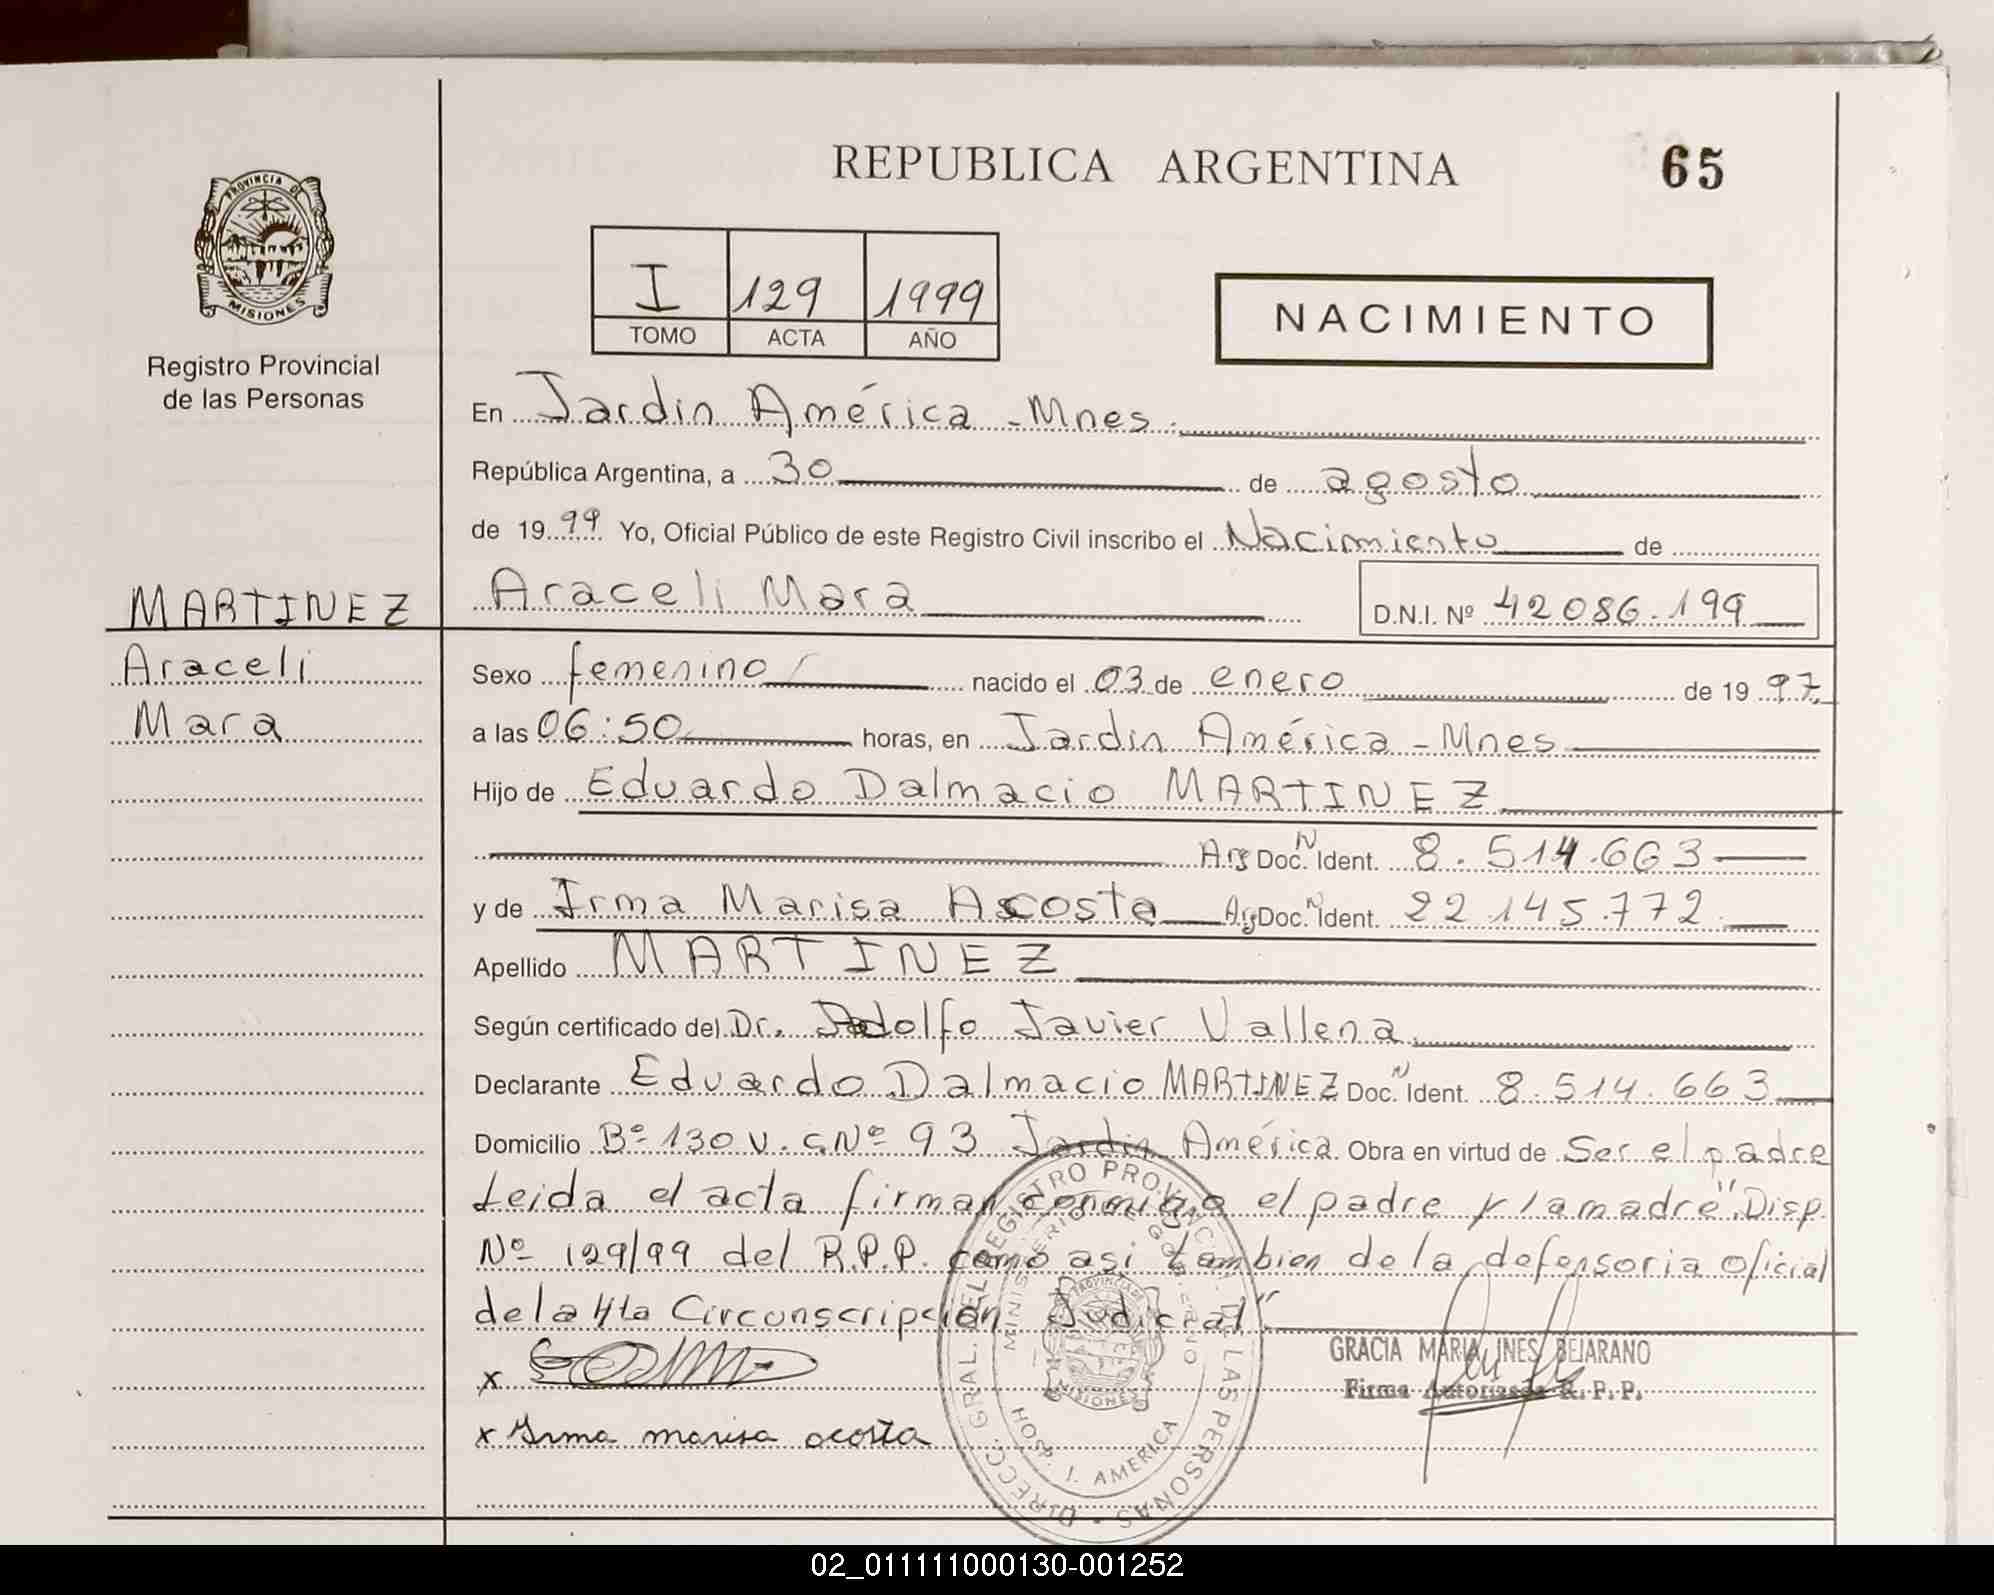 REPUBLICA ARGENTINA
65
PROVINCIA DE
MISIONES
Registro Provincial
de las Personas
I 129 1999
TOMO ACTA AÑO
NACIMIENTO
En Jardin América - Mnes.
República Argentina, a 30 de agosto
de 1999 Yo, Oficial Público de este Registro Civil inscribo el Nacimiento de
MARTINEZ
Araceli Mara D.N.I. Nº 42086.199
Araceli
Mara
Sexo femenino nacido el 03 de enero de 1997
a las 06:50 horas, en Jardin América - Mnes
Hijo de Eduardo Dalmacio MARTINEZ
Arg Doc. N Ident. 8.514.663
y de Irma Marisa Acosta Arg Doc. N Ident. 22.145.772
Apellido MARTINEZ
Según certificado del Dr. Adolfo Javier Vallena
Declarante Eduardo Dalmacio MARTINEZ Doc. N Ident. 8.514.663
Domicilio Bº 130 V. C.Nº 93 Jardin América Obra en virtud de Ser el padre
Leida el acta firman conmigo el padre y la madre". Disp.
Nº 129/99 del R.P.P. como asi tambien de la defensoria oficial
de la 4ta Circunscripción Judicial"
GRACIA MARIA INES BEJARANO
Firma Autorizada R.P.P.
x
x Irma marisa acosta
DIRECC. GRAL. DEL REGISTRO PROVINC. DE LAS PERSONAS
MINISTERIO DE GOBIERNO
HOSP. J. AMERICA
PROVINCIA DE
MISIONES
02_011111000130-001252